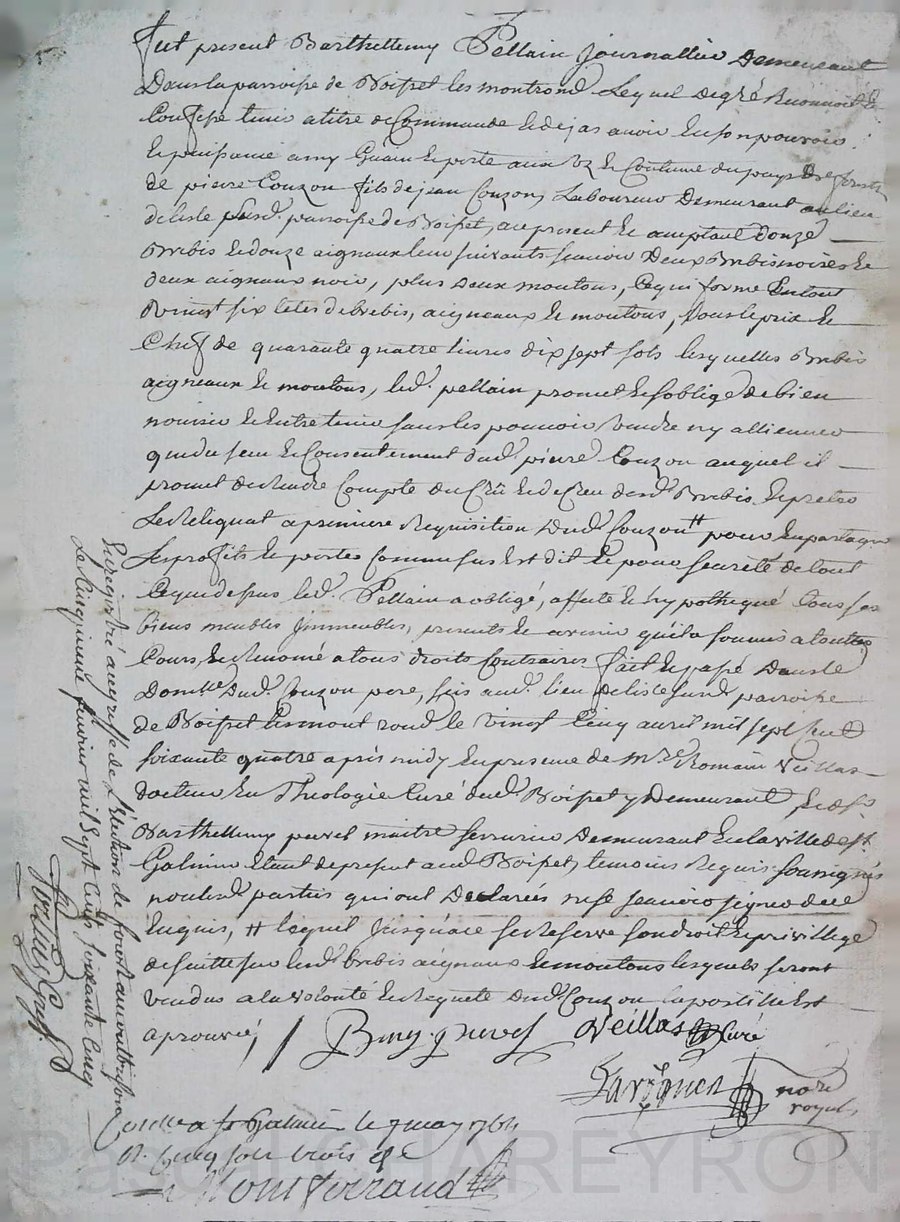 fut present Barthellemy Pellain journallier Demeurant
Dans la parroisse de Boisset les montrond Lequel de gré a reconnoit et
Confesse tenir a titre de Commande et deja avoir en son pouvoir
et puissance a my Guain et perte aux Uz et Coutume du pays de forests
de pierre Couzon fils de jean Couzon, Laboureur Demeurant au lieu
delisle susd. parroisse de Boisset, au present et aceptant douze
Brebis et douze aigneaux leur suivants scavoir Deux Brebis noires et
deux aigneaux noir, plus deux moutons, ce qui forme en tout
Vaint six tetes de brebis, aigneaux et moutons, sous le prix et
Cheps de quarante quatre livres dix sept sols lesquelles Brebis
aigneaux et moutons, led. pellain promet et s'oblige de bien
nourrir et entretenir sans les pouvoir vendre ny alliener
que du sceu et Consentement dud. pierre Couzon auquel il
promet de rendre Compte du Crû et de Creu desd. Brebis et preter
le Reliquat a premiere Requisition dud. Couzon # pour en partager
les profits et pertes comme sus est dit et pour sureté de tout
ce que depus led. Pellain a obligé, affecté et hypothequé tous ses
biens meubles Immeubles, presents et avenir qu'il a soumis a toutes
Cours, et Renoncé a tous droits Contraires fait et passé Dans le
Domlle Dud. Couzon pere, sis aud. lieu delisle susd. parroisse
de Boisset Lesmont rond le vingt Cinq avril mil sept cent
soixante quatre apres midy en presence de Mre Romain Veillas
docteur En Theologie Curé dud. Boisset y Demeurant, et de sr.
Barthellemy puvel maitre serrurier Demeurant En la ville de st
Galmier Etant de present aud. Boisset, temoins Requis soussignés
non lesd. parties qui ont Declarées ne se scavoir signer de ce
Enquis, # lequel jusqu'a ce se Reserve son droit et privillege
de suitte sur lesd. brebis aigneaux et moutons lesquels seront
vendus a la volonté et Requete dud. Couzon lapostille Est
aprouvée,
Veillas Curé
nore
royal
Conlle a st Galmier le 7 may 1764
R. Cinq sols trois d
Montferrand
Enregistré au greffe de L'Election de forest a montbrison
Le Cinquieme fevrier mil Sept Cents soixante Cinq
Pascal CHAREYRON